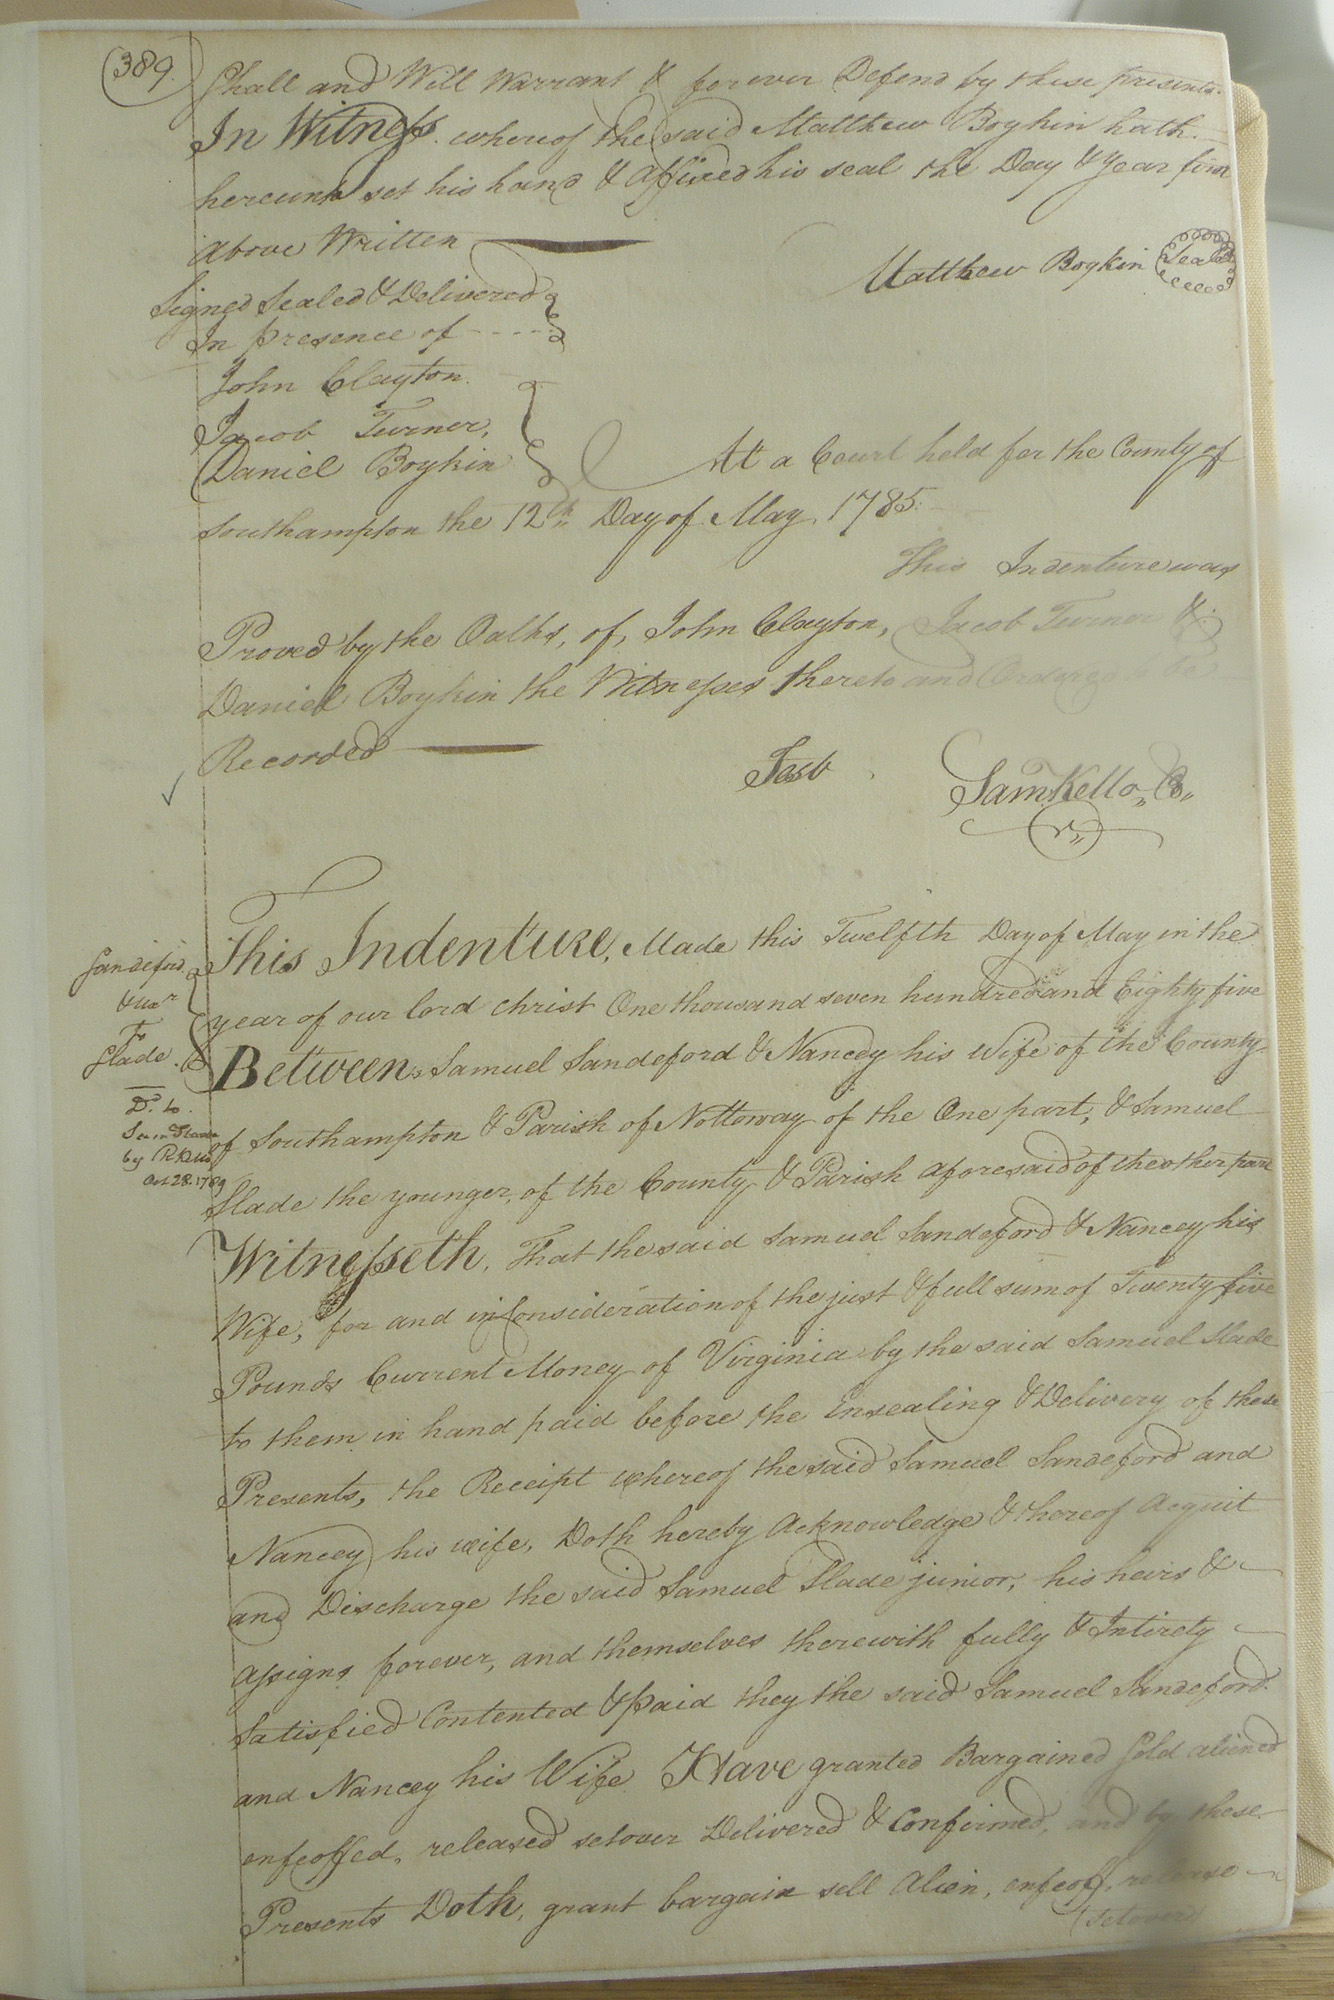 (389.)
Shall and Will Warrant & forever Defend by these presents.
In Witness. whereof the said Matthew Boykin hath
hereunto set his hand & affixed his seal the Day & Year first
above Written
Matthew Boykin Seal
Signed Sealed & Delivered
In presence of
John Clayton.
Jacob Turner,
Daniel Boykin
At a Court held for the County of
Southampton the 12th Day of May, 1785.
This Indenture was
Proved by the Oaths, of, John Clayton, Jacob Turner &
Daniel Boykin the Witnesses thereto and Ordered to
Recorded
Test
Sam. Kello, C.
Sandeford
& uxr
To
Slade.
D. to.
Sam Slade
by
Oct. 28. 1789
This Indenture, Made this Twelfth Day of May in the
year of our lord Christ One thousand seven hundred and Eighty five
Between, Samuel Sandeford & Nancey his Wife of the County
of Southampton & Parish of Nottoway of the One part, & Samuel
Slade the younger, of the County & Parish aforesaid of the other part
Witnesseth, That the said Samuel Sandeford & Nancey his
Wife, for and in Consideration of the just & full sum of Twenty five
Pounds Current Money of Virginia by the said Samuel Slade
to them in hand paid before the Ensealing & Delivery of these
Presents, the Receipt whereof the said Samuel Sandeford and
Nancey his wife, Doth hereby Acknowledge & thereof Acquit
and Discharge the said Samuel Slade junior, his heirs &
assigns forever, and themselves therewith fully & Intirely
Satisfied Contented & paid they the said Samuel Sandeford.
and Nancey his Wife Have granted Bargained Sold aliened
enfeoffed, released setover Delivered & Confirmed, and by these
Presents Doth, grant bargain sell Alien, enfeoff, release
(setover